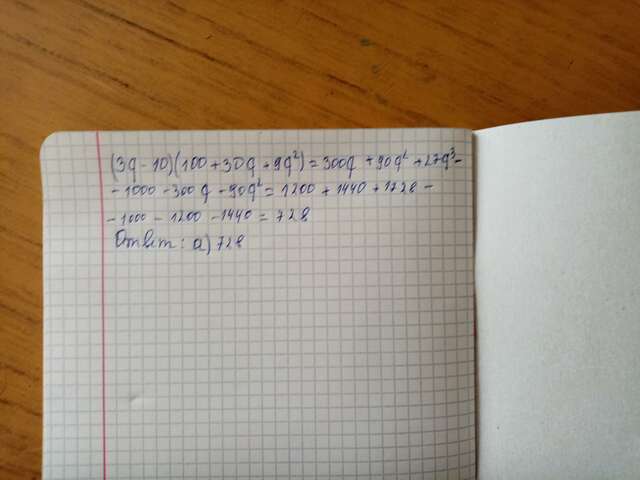 (3q - 10)(100 + 30q + 9q²) = 300q + 90q² + 27q³ -
- 1000 - 300q - 90q² = 1200 + 1440 + 1728 -
- 1000 - 1200 - 1440 = 728
Ответ: а) 728